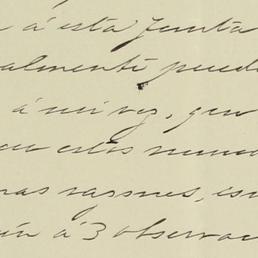 á esta Junta
almente puede
á mi vez, que
estos
razones,
á 3 observac